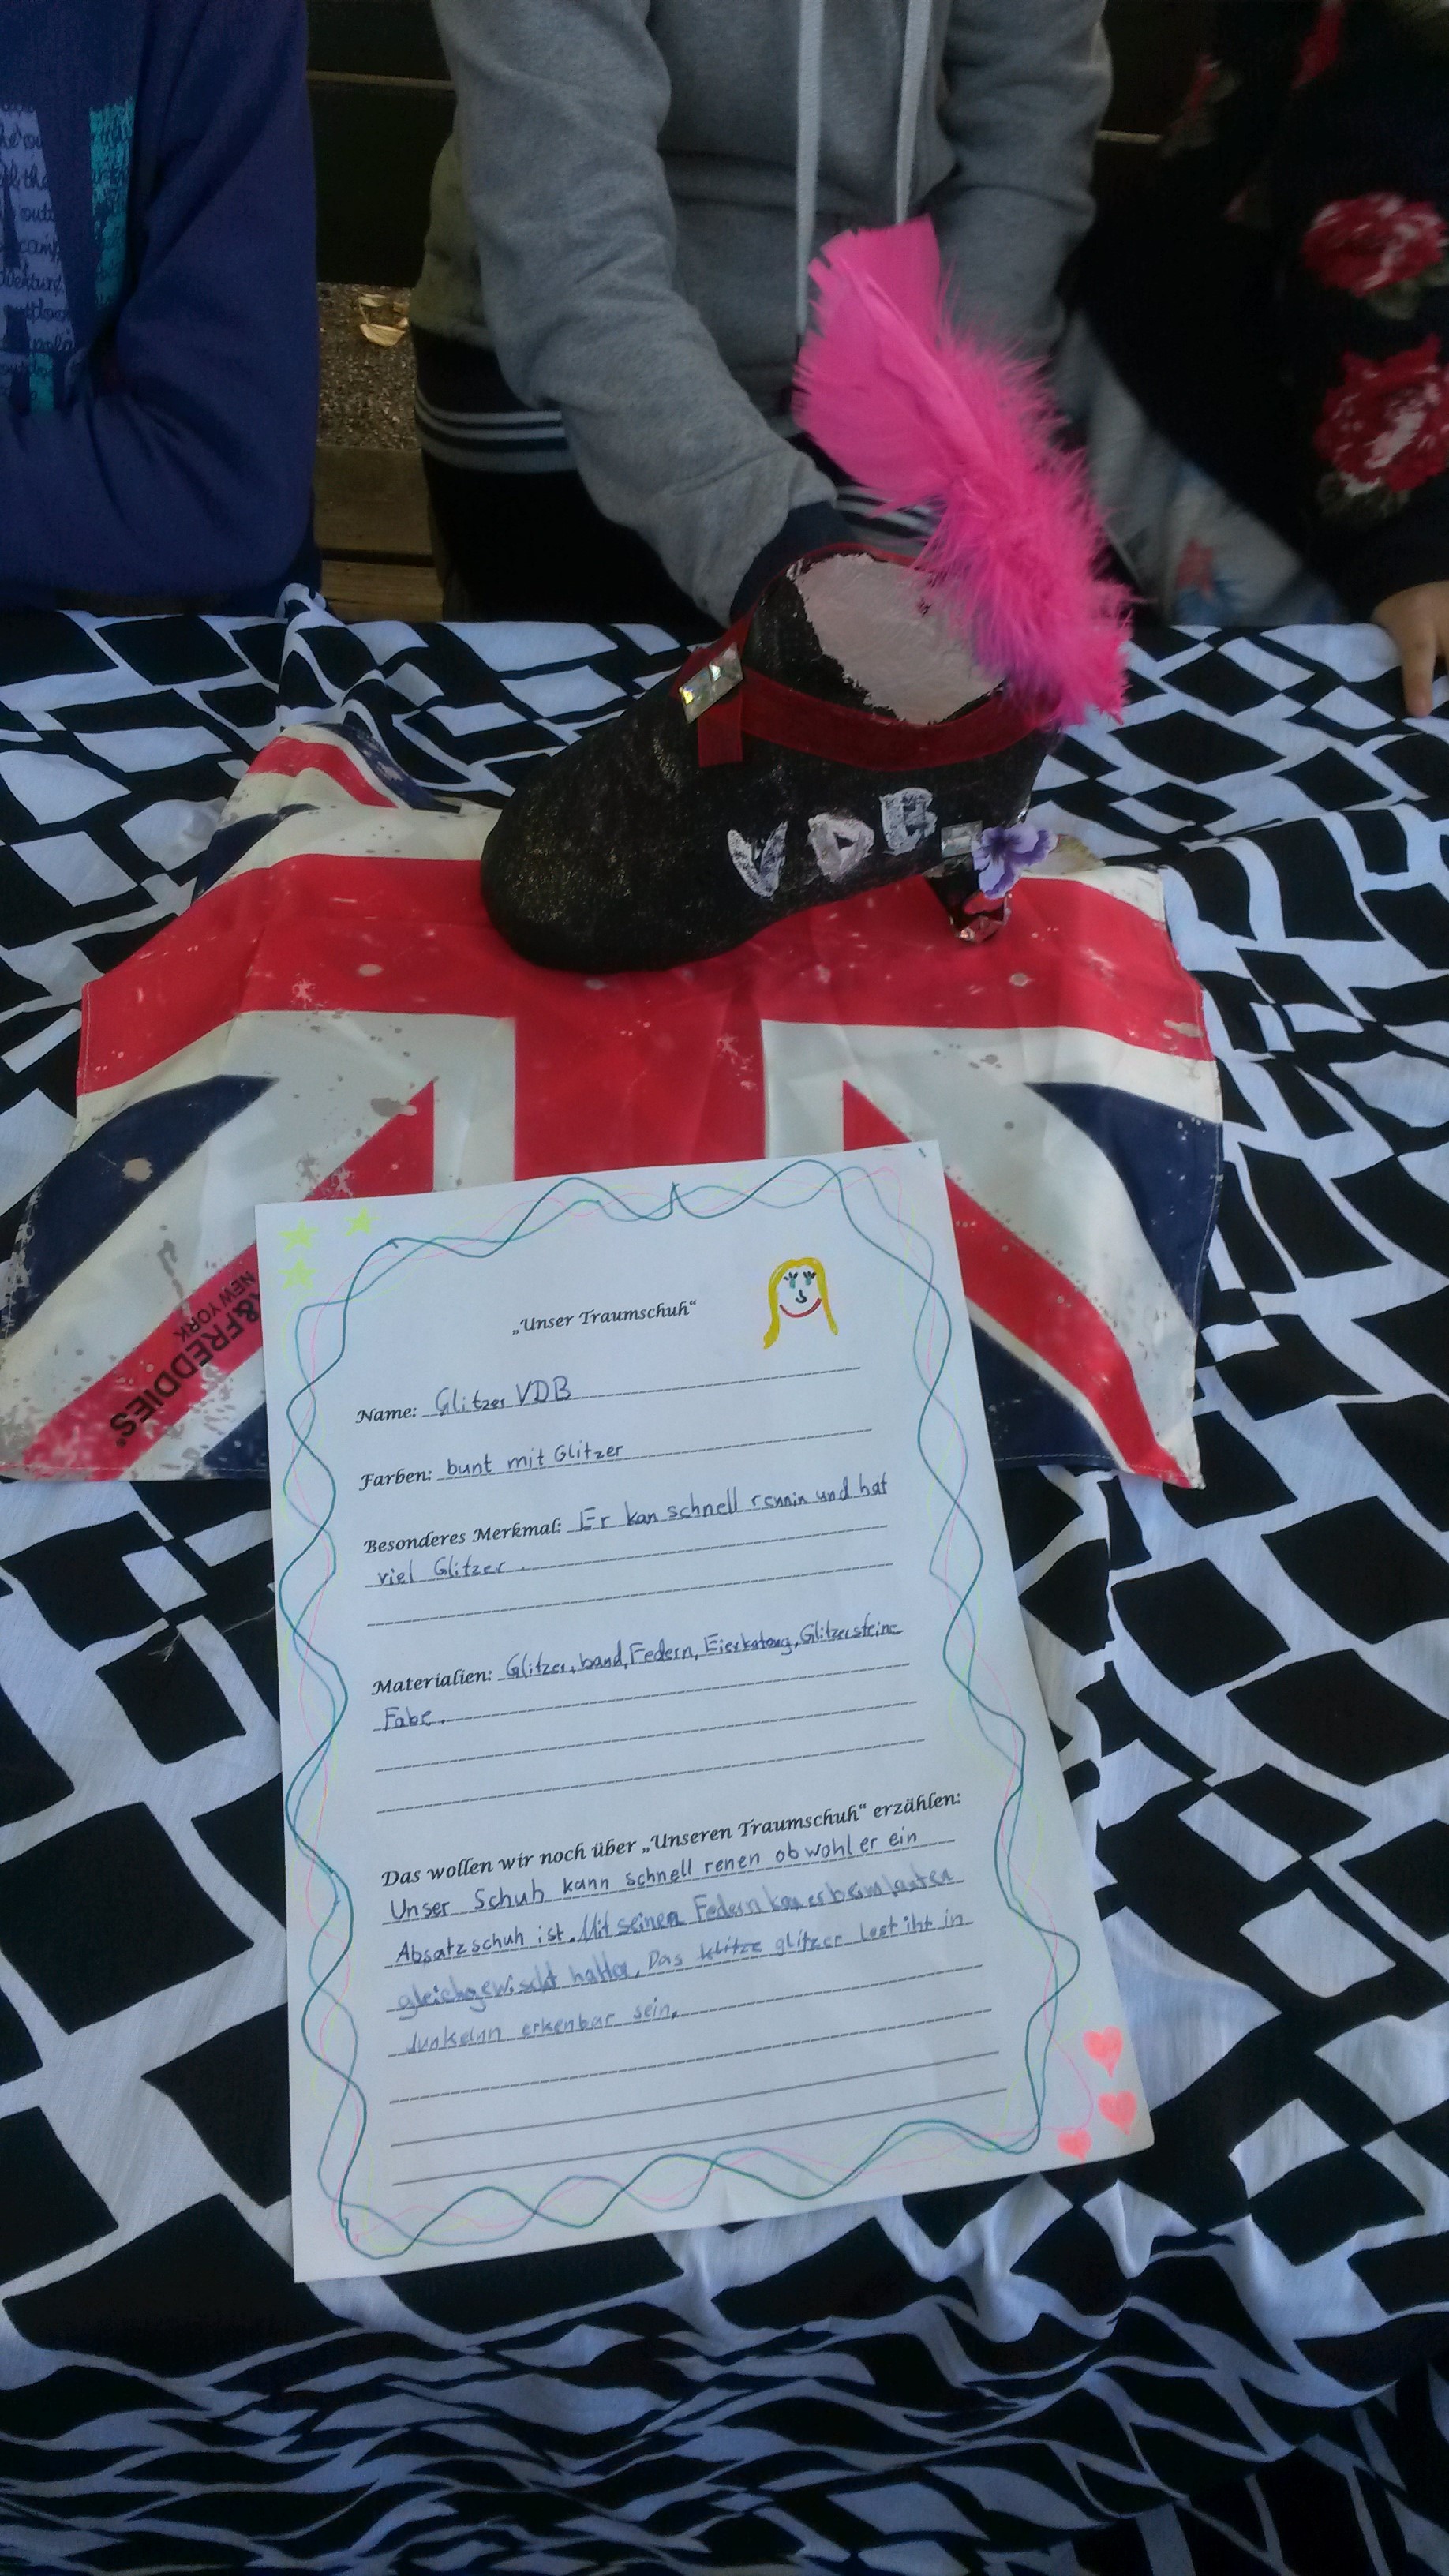 VDB
&FREDDIES
NEW YORK
„Unser Traumschuh“
Name: Glitzer VDB
Farben: bunt mit Glitzer
Besonderes Merkmal: Er kan schnell rennin und hat
viel Glitzer.
Materialien: Glitzer, band, Federn, Eierkatong, Glitzersteine
Fabe.
Das wollen wir noch über „Unseren Traumschuh“ erzählen:
Unser Schuh kann schnell renen obwohl er ein
Absatzschuh ist. Mit seinen Federn kan er beim laufen
gleichgewischt halten. Das klitze glitzer lest iht in
dunkelnn erkenbar sein.